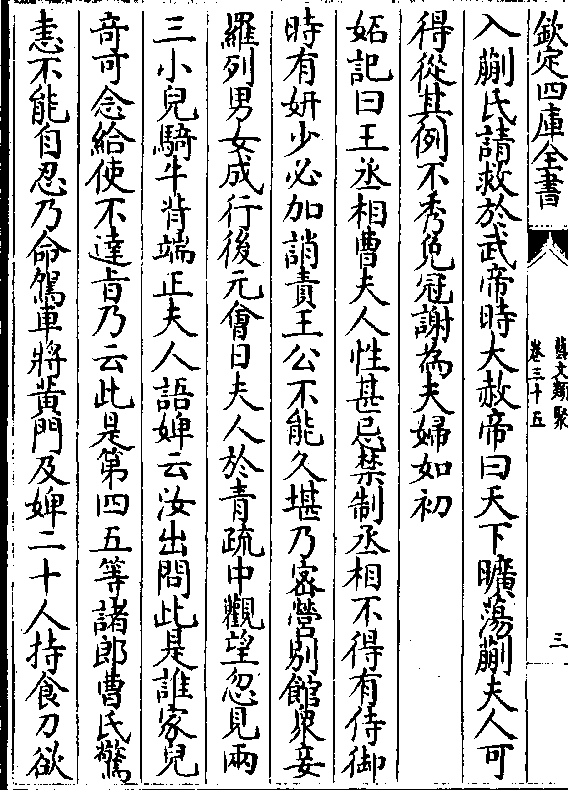 欽定四庫全書
藝文類聚
卷三十五
三
入蒯氏請救於武帝時大赦帝曰天下曠蕩蒯夫人可
得從其例不秀免冠謝為夫婦如初
妬記曰王丞相曹夫人性甚忌禁制丞相不得有侍御
時有妍少必加誚責王公不能久堪乃密營別館衆妾
羅列男女成行後元會日夫人於青疏中觀望忽見兩
三小兒騎牛背端正夫人語婢云汝出問此是誰家兒
奇可念給使不達旨乃云此是第四五等諸郎曹氏驚
恚不能自忍乃命駕車將黃門及婢二十人持食刀欲